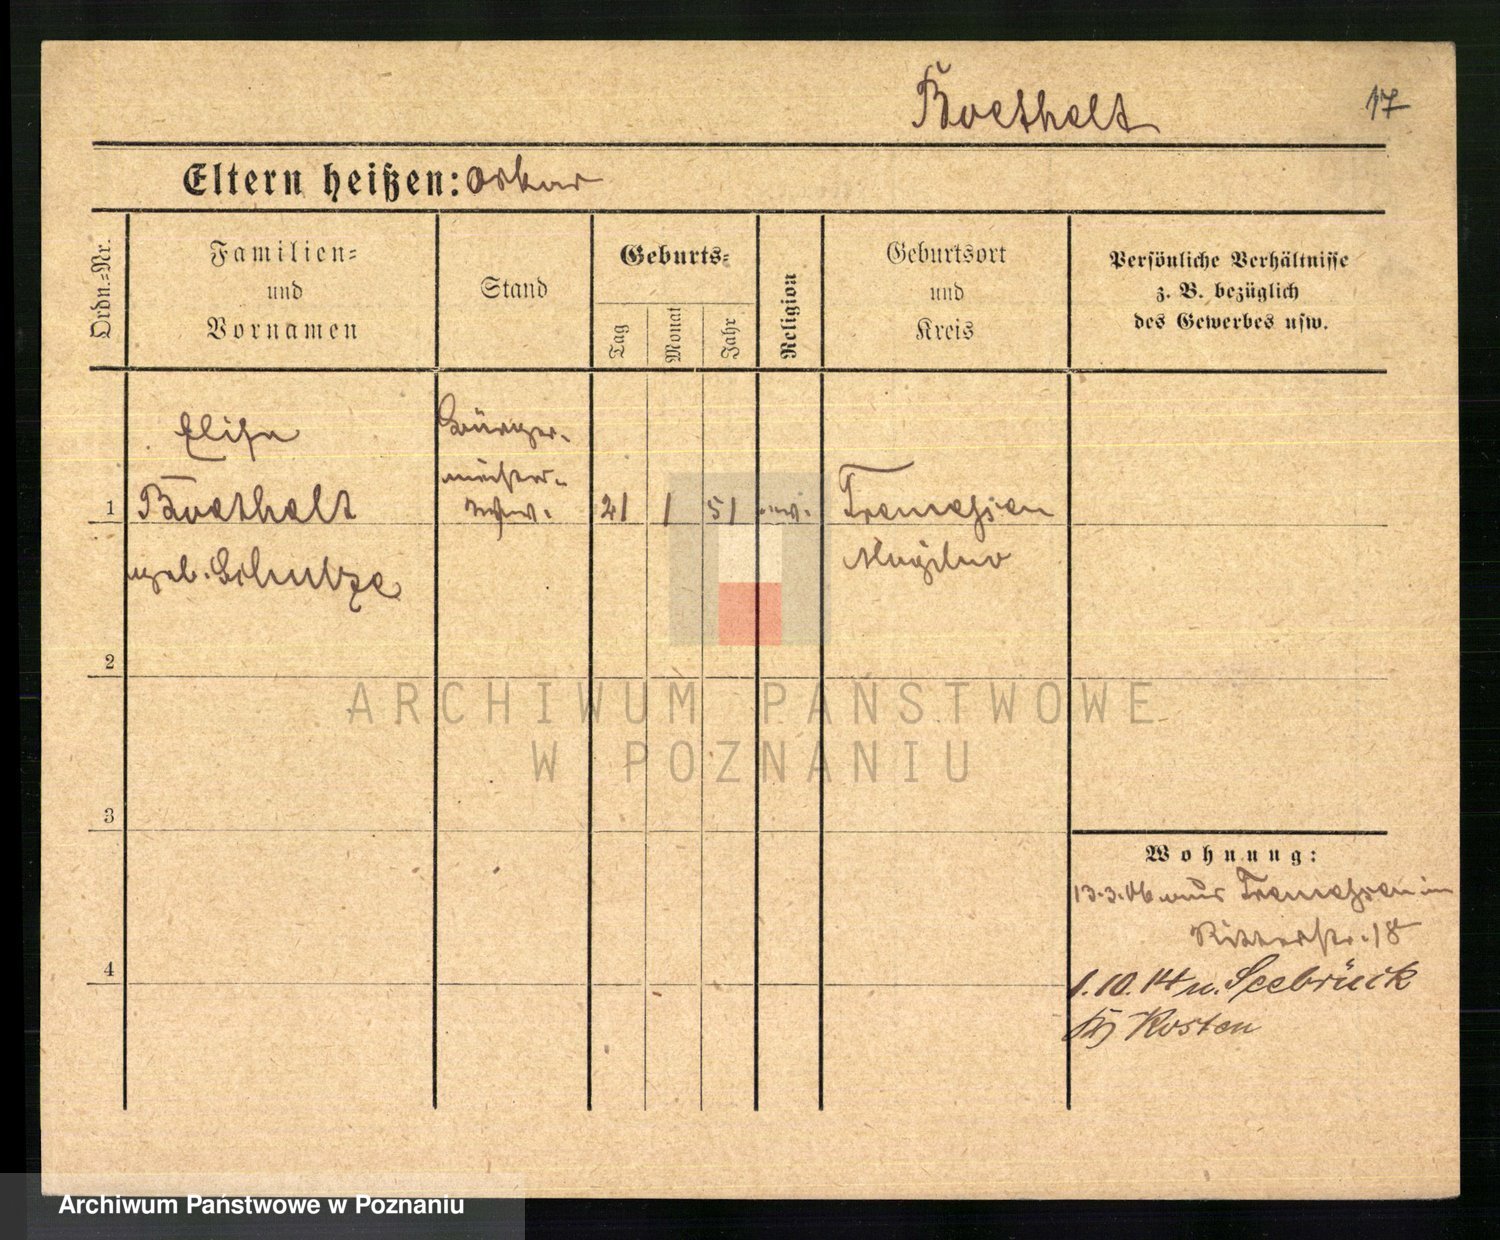 Boethelt 17
Eltern heißen: Oskar
Ordn.-Nr.
Familien-
und
Vornamen
Stand
Geburts-
Tag
Monat
Jahr
Religion
Geburtsort
und
Kreis
Persönliche Verhältnisse
z. B. bezüglich
des Gewerbes usw.
Elise
Bürger-
meister-
1 Boethelt 21 1 51 Tremessen
geb. Schulze Mogilno
2
ARCHIWUM PAŃSTWOWE
W POZNANIU
3
Wohnung:
13.3.06 aus Tremessen in
Ritterstr. 18
4
1.10.14 n. Seebrück
Kr Kosten
Archiwum Państwowe w Poznaniu